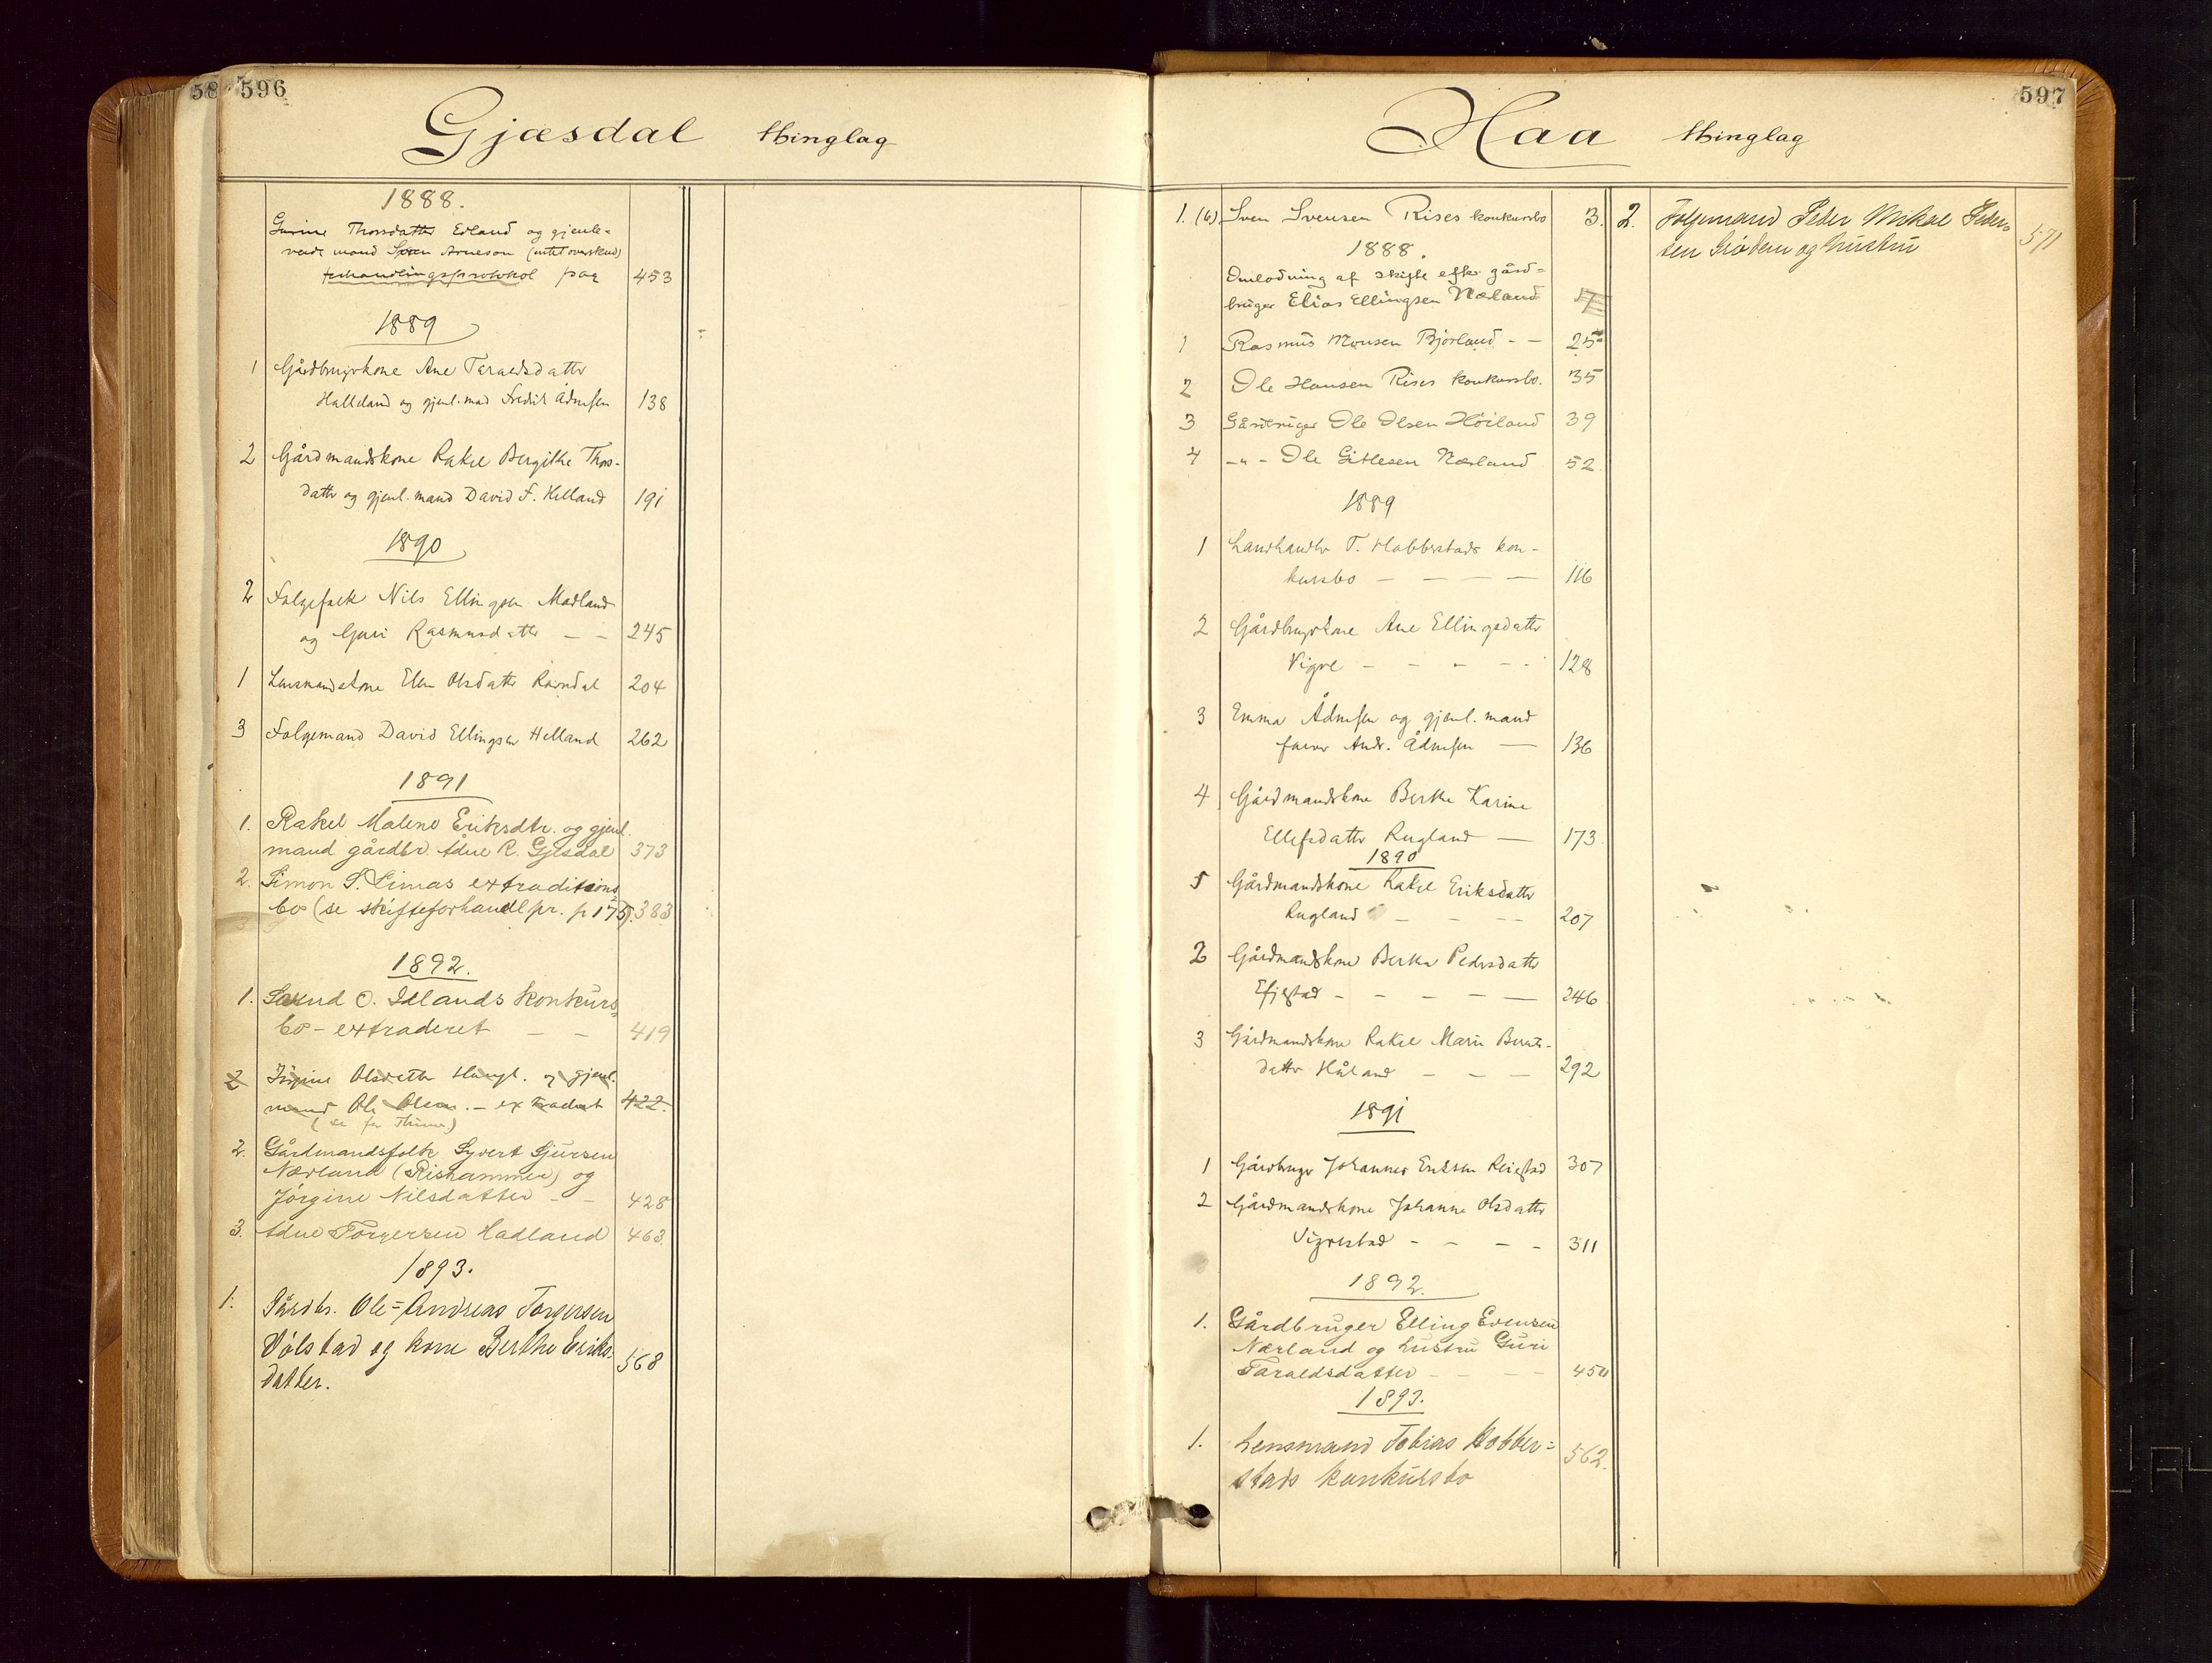 58 596
Gjæsdal Thinglag
1888.
Gurine Thorsdatter Edland og gjenle-
vende mand Sven Arneson (intet overskud)
forhandlingsprotokol pag 453
1889
1 Gårdbrugerkone Ane Taraldsdatter
Halleland og gjenl. mand Fredrik Ådnesen 138
2 Gårdmandskone Rakel Bergithe Thors-
datter og gjenl. mand David F. Helland 191
1890
2 Folgefolk Nils Ellingsen Madland
og Guri Rasmusdatter — — 245
1 Lensmandskone Elen Olsdatter Ravndal 204
3 Folgemand David Ellingsen Helland 262
1891
1. Rakel Malene Eriksdtr. og gjenl.
mand gårdbr. Adne R. Gjesdal 373
2. Simon S. Limas extraditions
bo (se skifteforhandl pr. p 175). 383
1892.
1. Svend O. Idlands konkurs-
bo - extraderet — — 419
2 Olsdatter og gjenl.
mand Ole Olsen. - extraderet 422.
(se for Thime)
2. Gårdmandsfolk Syvert Sjursen
Nærland (Rishammer) og
Jørgine Nilsdatter — — 428
3. Adne Torgersen Hadland 463.
1893.
1. Gårdbr. Ole=Andreas Torgersen
Ålstad og kone Berthe Eriks-
datter. 568
597
Haa Thinglag
1. (6) Sven Svensen Rises konkursbo 3.
1888.
Omlodning af skifte efter gård=
bruger Elias Ellingsen Nærland 17
1 Rasmus Monsen Bjorland - — 25
2 Ole Hansen Rises konkursbo. 35
3 Gårdbruger Ole Olsen Høiland 39
4 -"- Ole Gitlesen Nærland 52.
1889
1 Landhandler T. Hobberstads kon-
kursbo — — — — 116
2 Gårdbrugerkone Ane Ellingsdatter
Vigre — — — — 128
3 Emma Ådnesen og gjenl. mand
farver Andr. Ådnesen — 136
4 Gårdmandskone Berthe Karine
Ellefsdatter Rugland — 173.
1890
1 Gårdmandskone Rakel Eriksdatter
Rugland — — — 207
2 Gårdmandskone Bertha Pedersdatter
— — — — — 246
3 Gårdmandskone Rakel Marie Bernts-
datter Håland — — — 292
1891
1 Gårdbruger Johannes Eriksen Reiestad 307
2 Gårdmandskone Johanne Olsdatter
Sigvestad — — — — 311
1892.
1. Gårdbruger Elling Evensen
Nærland og hustru Guri
Taraldsdatter — — — — 450
1893.
1. Lensmand Tobias Hobber=
stads konkursbo 562.
2. Folgemand Peder Mikal Peder-
sen Grødem og hustru 571